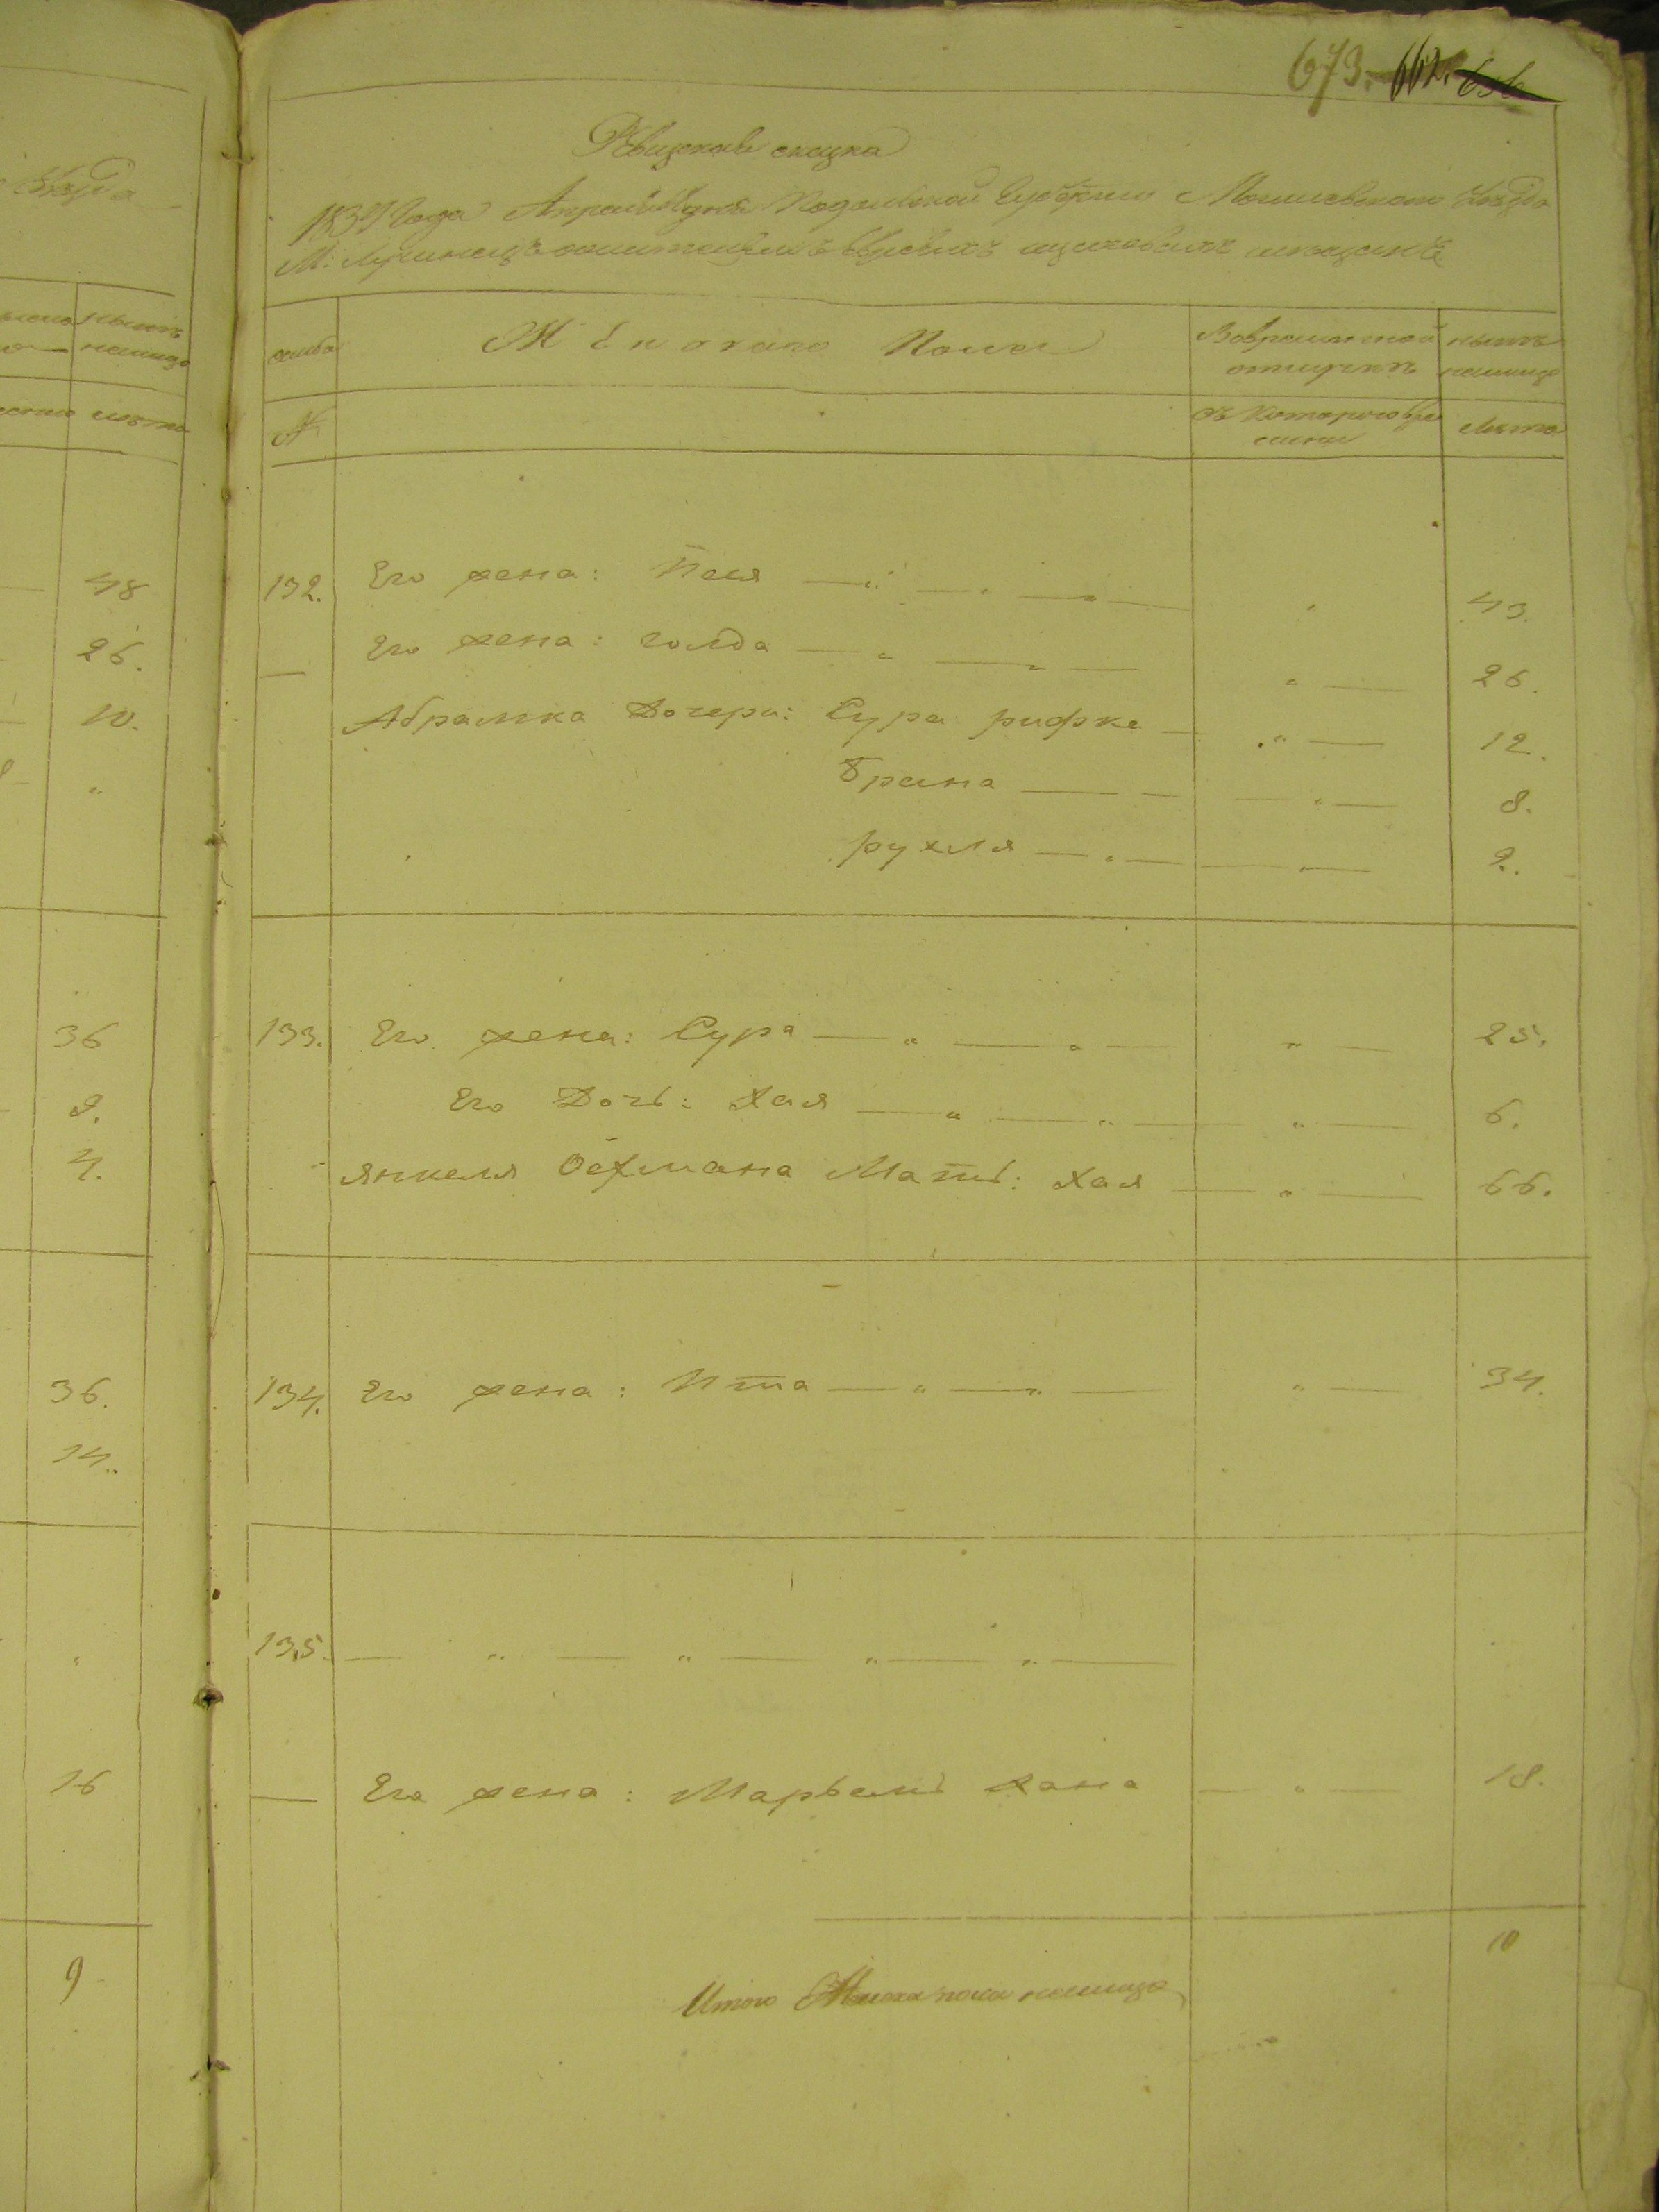 673. 662. 656
Ревизская сказка
1834 Года Апреля дня Подольской Губернии Могилевского Уезда
М: Лучинец о евреях мещанах
Уезда
семьи
Женского Пола
Вовременной отлучке
ныне налицо
№
Съ Которого времени
Лета
ныне налицо
лета
132. Его жена: Песя — " — " — " — " 43.
— Его жена: голда — " — " — " — 26.
Абрамка Дочери: Сура рифке — " — 12.
Браина — — " — 8.
рухля — " — " — 2.
133. Его жена: Сура — " — " — " — 25.
Его Дочь: Хая — " — " — " — 6.
янкеля Мать: Хая — " — 66.
134. Его жена: Ита — " — " — " — 34.
135. — " — " — " — " —
— Его жена: Марьем Хана — " — 18.
Итого Женска пола налицо 10
48
26.
10.
"
36
9.
4.
36.
14.
"
16
9